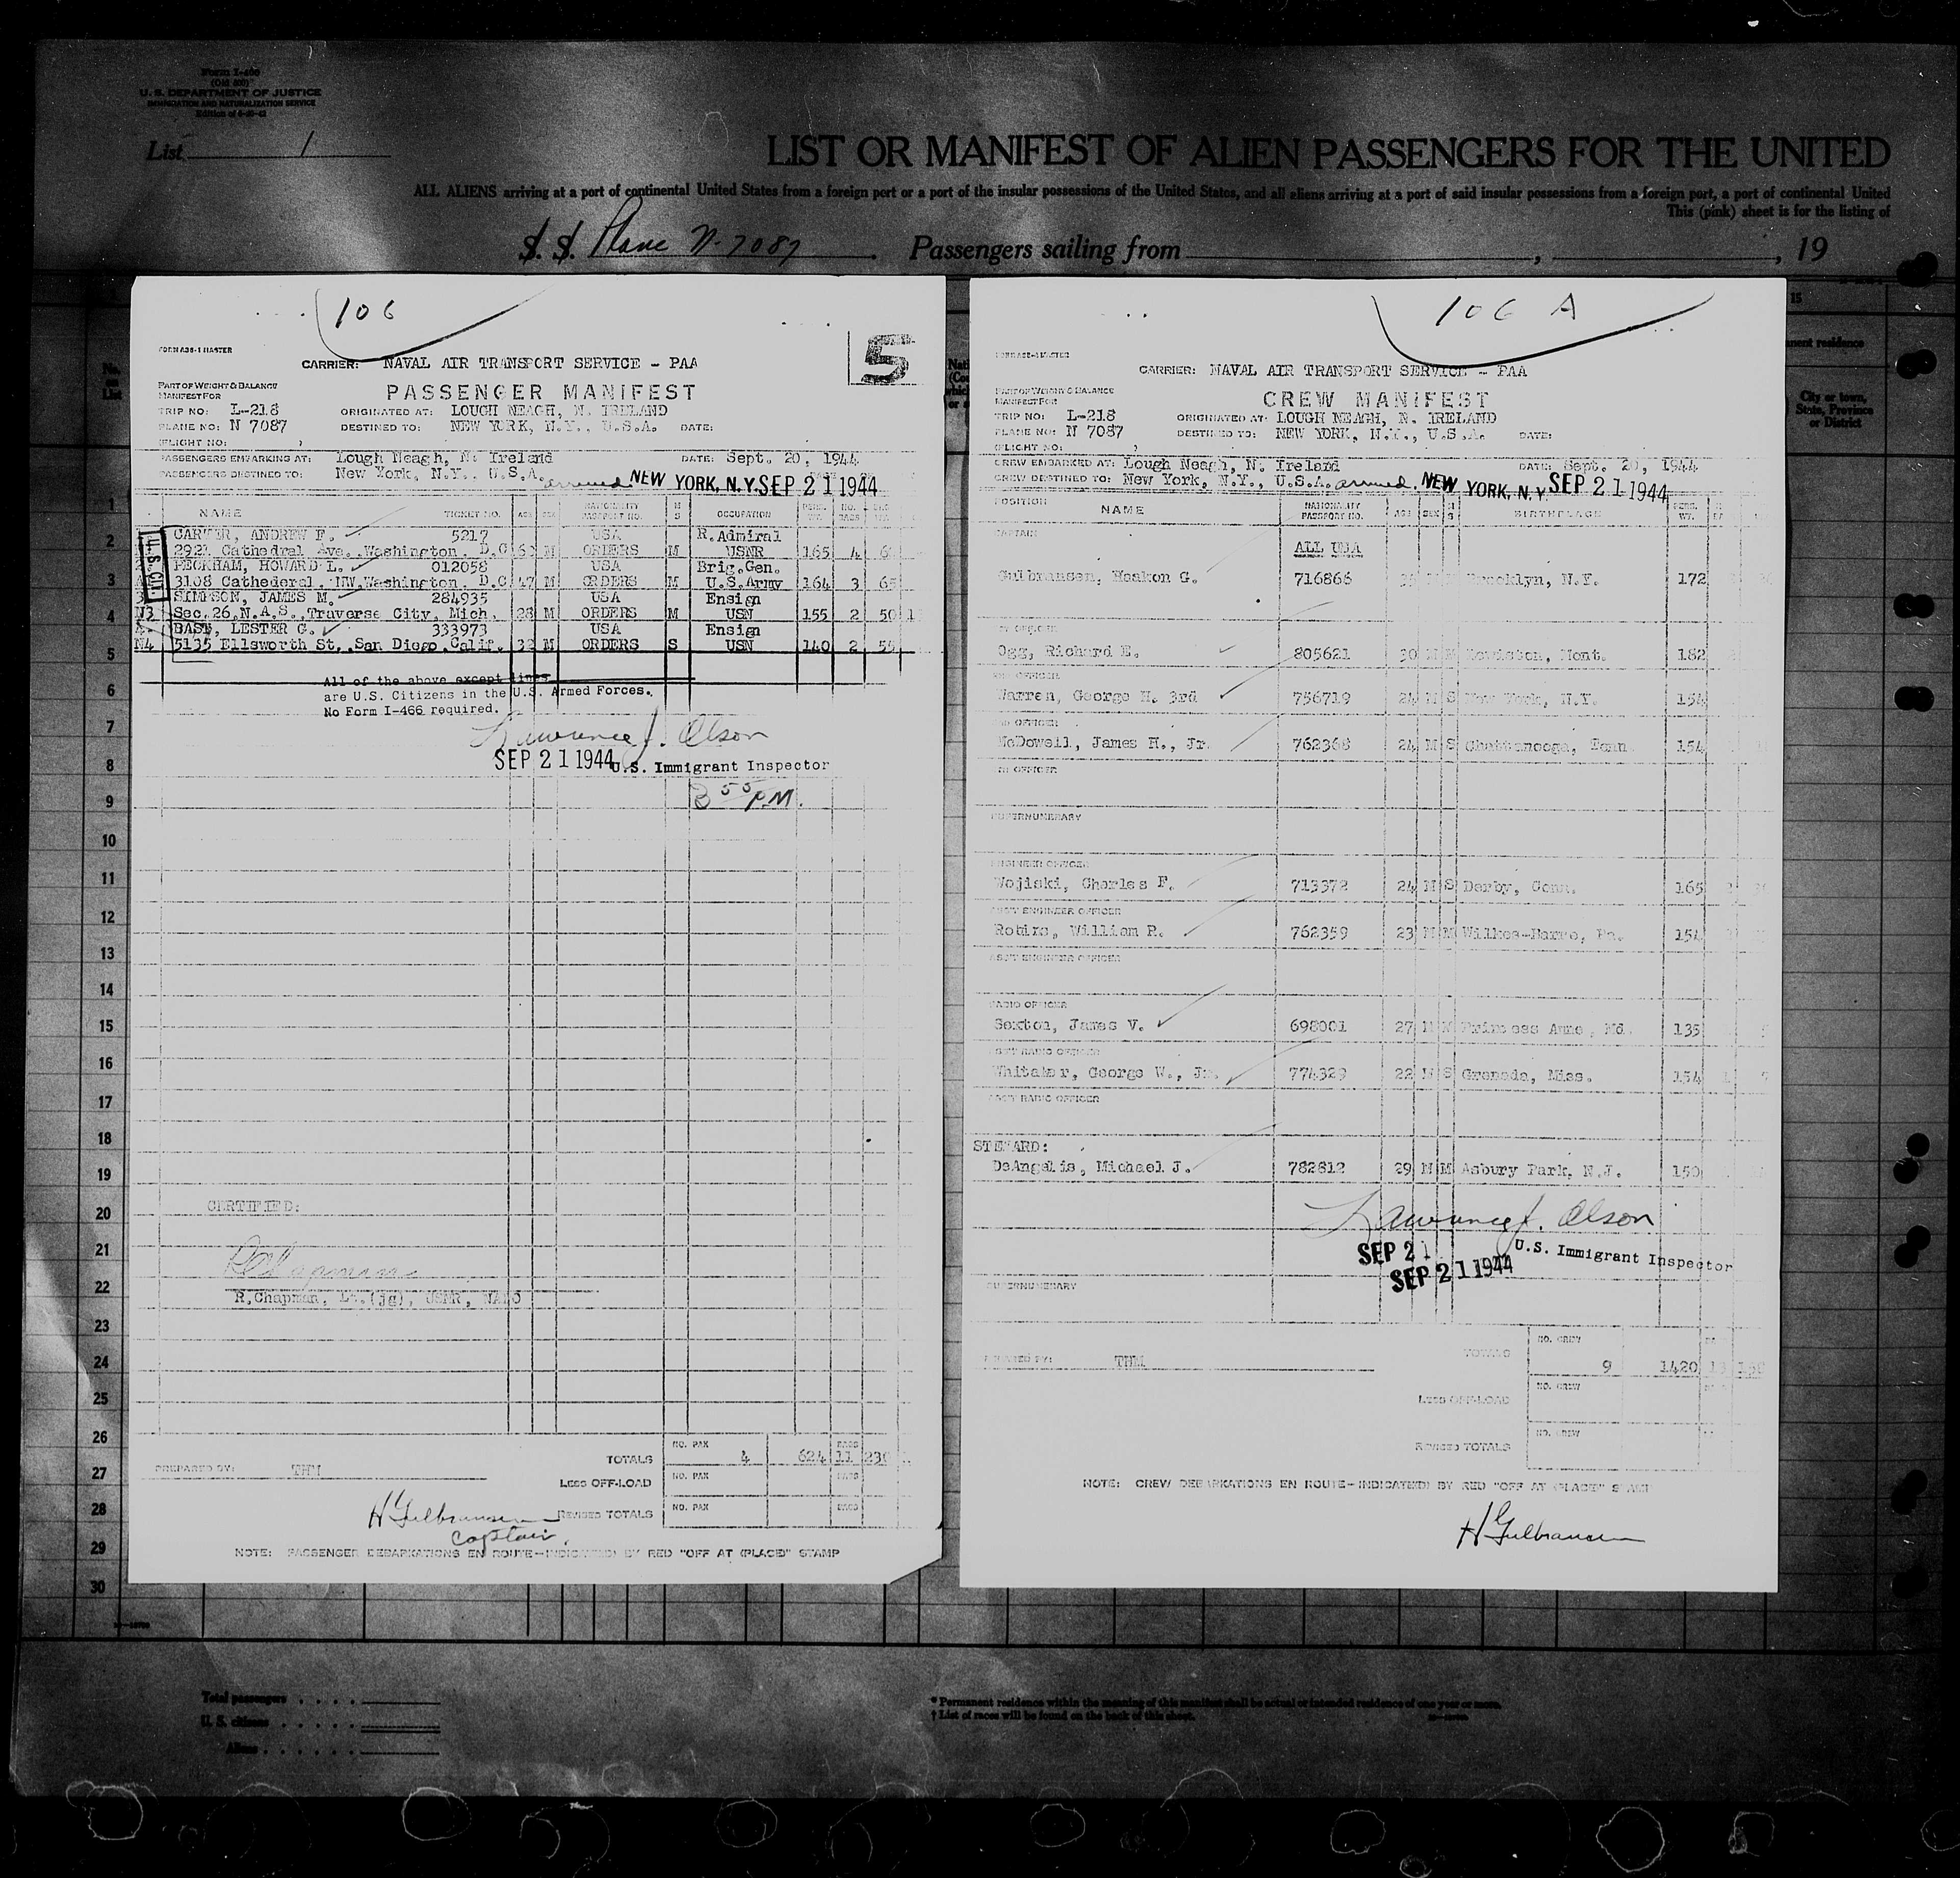 Form I-466
(Old 500)
U. S. DEPARTMENT OF JUSTICE
IMMIGRATION AND NATURALIZATION SERVICE
List 1
LIST OR MANIFEST OF ALIEN PASSENGERS FOR THE UNITED
ALL ALIENS arriving at a port of continental United States from a foreign port or a port of the insular possessions of the United States, and all aliens arriving at a port of said insular possessions from a foreign port, a port of continental United
This (pink) sheet is for the listing of
S. S. Plane N-7087. Passengers sailing from , , 19
106
5
CARRIER: NAVAL AIR TRANSPORT SERVICE - PAA
PART OF WEIGHT & BALANCE
PASSENGER MANIFEST
MANIFEST FOR
TRIP NO: L-218 ORIGINATED AT: LOUGH NEAGH, N. IRELAND
PLANE NO: N 7087 DESTINED TO: NEW YORK, N.Y., U.S.A. DATE:
(FLIGHT NO: )
PASSENGERS EMBARKING AT: Lough Neagh, N. Ireland DATE: Sept. 20, 1944
PASSENGERS DESTINED TO: New York, N.Y., U.S.A. arrived NEW YORK, N.Y. SEP 21 1944
NAME TICKET NO. AGE SEX NATIONALITY PASSPORT NO. M S OCCUPATION
U.S. CIT.
CARTER, ANDREW F. 5217 USA R.Admiral
Cathedral Ave. Washington. D.C M ORDERS M USNR 165 4
PECKHAM, HOWARD L. 012058 USA Brig.Gen.
3108 Cathederal. NW.Washington. D.C 47 M ORDERS M U.S.Army 164 3 65
SIMPSON, JAMES M. 284935 USA Ensign
Sec.26,N.A.S.,Traverse City, Mich. 28 M ORDERS M USN 155 2 50
BAST, LESTER G. 333973 USA Ensign
5135 Ellsworth St. San Diego Calif. M ORDERS S USN 140 2 55
All of the above except lines
are U.S. Citizens in the U.S. Armed Forces.
No Form I-466 required.
Lawrence J. Olson
SEP 21 1944 U.S. Immigrant Inspector
3 55 P.M.
CERTIFIED:
R.Chapman, Lt.(jg), USNR,
TOTALS NO. PAX 4 624 BAGS 11
PREPARED BY: THM
LESS OFF-LOAD NO. PAX BAGS
REVISED TOTALS NO. PAX BAGS
H Gulbransen
Captain.
NOTE: PASSENGER DEBARKATIONS EN ROUTE-INDICATED BY RED "OFF AT (PLACE)" STAMP
106 A
CARRIER: NAVAL AIR TRANSPORT SERVICE - PAA
PART OF WEIGHT & BALANCE
CREW MANIFEST
MANIFEST FOR
TRIP NO: L-218 ORIGINATED AT: LOUGH NEAGH, N. IRELAND
PLANE NO: N 7087 DESTINED TO: NEW YORK, N.Y., U.S.A. DATE:
(FLIGHT NO: )
CREW EMBARKED AT: Lough Neagh, N. Ireland DATE: Sept. 20, 1944
CREW DESTINED TO: New York, N.Y., U.S.A. arrived. NEW YORK, N.Y SEP 21 1944
POSITION NAME NATIONALITY PASSPORT NO. AGE SEX M S BIRTHPLACE PERS. WT.
CAPTAIN ALL USA
Gulbransen, Haakon G. 716866 Brooklyn, N.Y. 172
Ogg, Richard E. 805621 30 M M Lewiston, Mont. 182
Warren, George H. 3rd 756719 24 M S New York, N.Y. 154
McDowell, James H., Jr. 762368 24 M S Chattanooga, Tenn. 154
SUPERNUMERARY
ENGINEER OFFICER
Wojiski, Charles F. 713372 24 M S Derby, Conn. 165
ASS'T ENGINEER OFFICER
Robins, William R. 762359 23 M M Wilkes-Barre, Pa. 154
ASS'T ENGINEER OFFICER
RADIO OFFICER
Sexton, James V. 698001 27 M M Princess Anne, Md. 135
ASS'T RADIO OFFICER
Whitaker, George W., Jr. 774329 22 M S Grenada, Miss. 154
ASS'T RADIO OFFICER
STEWARD:
DeAngelis, Michael J. 782812 29 M M Asbury Park, N.J. 150
Lawrence J. Olson
SEP 21 U.S. Immigrant Inspector
SEP 21 1944
SUPERNUMERARY
NO. CREW
PREPARED BY: THM TOTALS 9 1420
NO. CREW
LESS OFF-LOAD
NO. CREW
REVISED TOTALS
NOTE: CREW DEBARKATIONS EN ROUTE-INDICATED BY RED "OFF AT (PLACE)" STAMP
H Gulbransen
15
City or town,
State, Province
or District
1
2
3
4
5
6
7
8
9
10
11
12
13
14
15
16
17
18
19
20
21
22
23
24
25
26
27
28
29
30
Total passengers
U. S. citizens
Aliens
* Permanent residence within the meaning of this manifest shall be actual or intended residence of one year or more.
† List of races will be found on the back of this sheet.